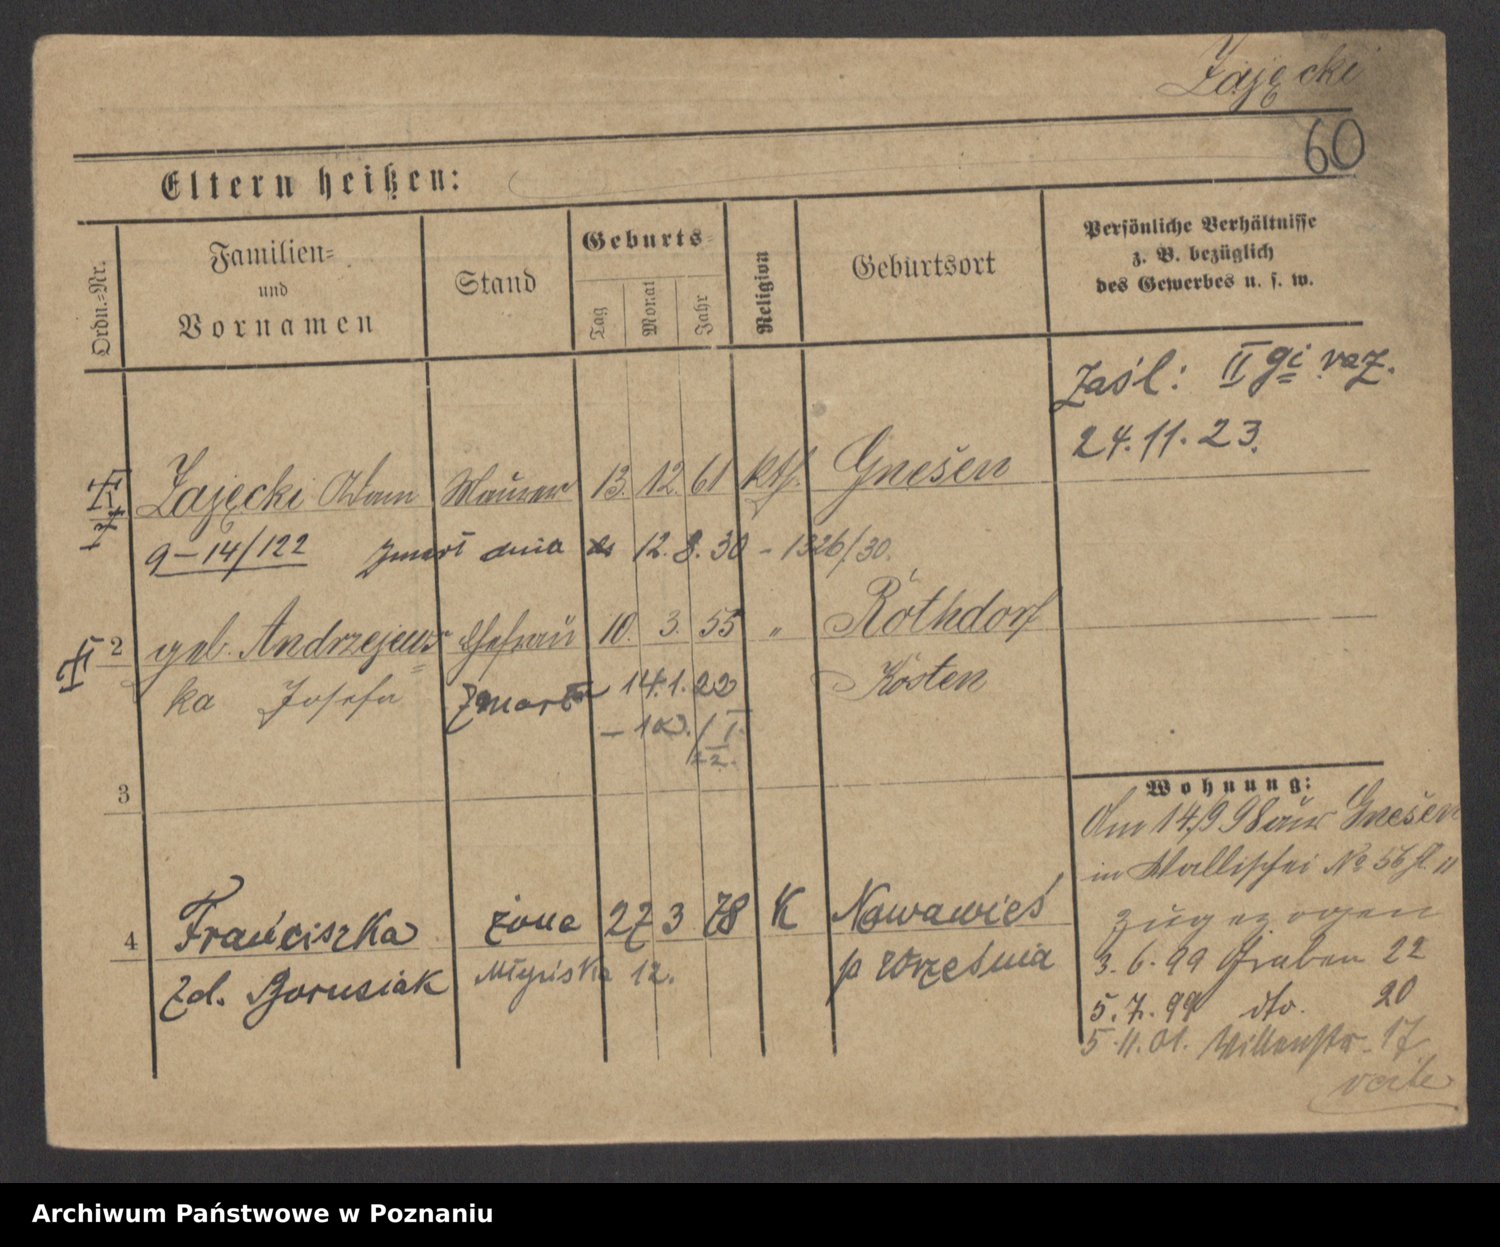 Zajęcki
60
Eltern heißen:
Ordn.-Nr.
Familien-
und
Vornamen
Stand
Geburts-
Tag
Monat
Jahr
Religion
Geburtsort
Persönliche Verhältnisse
z. B. bezüglich
des Gewerbes u. s. w.
Zaśl: II gi raz.
24.11.23.
Zajęcki Adam Maurer 13. 12. 61 kth. Gnesen
9-14/122 zmarł dnia 12.8.30 - 1326/30.
2 geb. Andrzejews Ehefrau 10. 3. 55 " Rothdorf
ka Josefa zmarła 14.1.22 Kosten
3
4 Franciszka żona 27 3 78 K Nowawieś
zd. Borusiak Młyńska 12. p Września
Wohnung:
Am 14/9 98 aus Gnesen
in Wallischei No 56
zugezogen
3.6.99 Graben 22
5.7.99 dto. 20
5.11.01. 17
verte
Archiwum Państwowe w Poznaniu